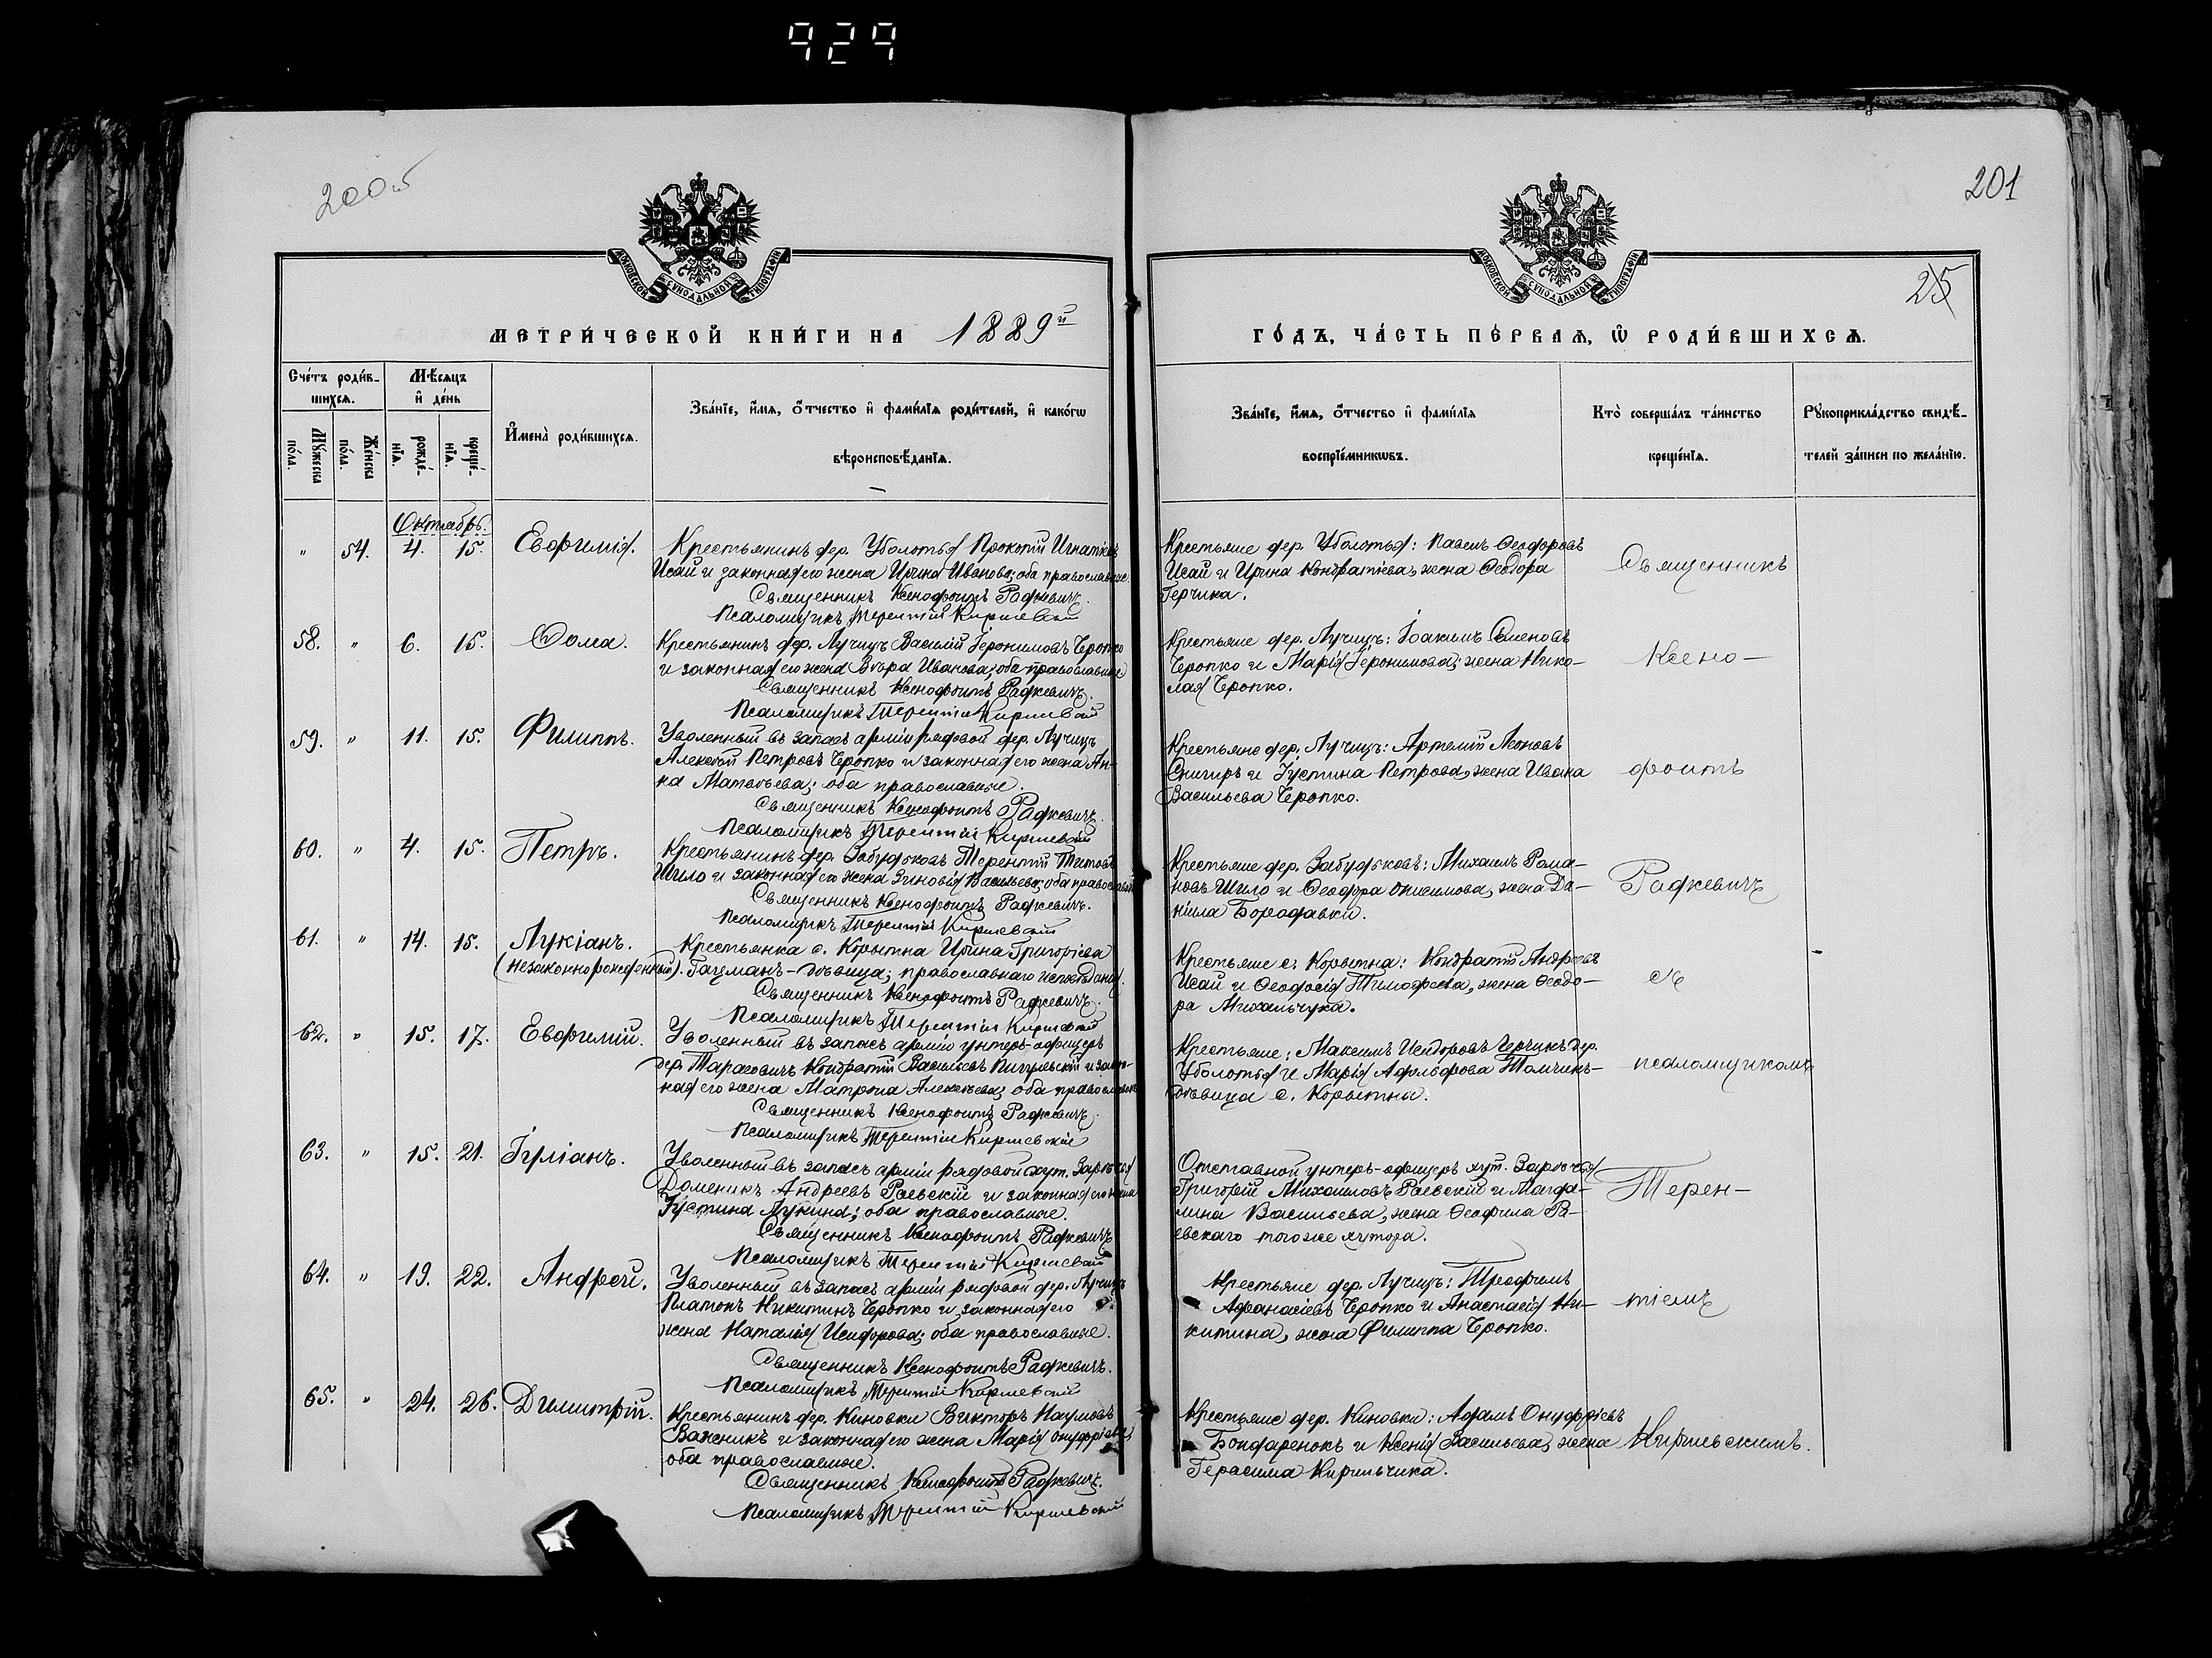 929
200об
201
25
МОСКОВСКОЙ СѴНОДАЛЬНОЙ ТИПОГРАФІИ
МОСКОВСКОЙ СѴНОДАЛЬНОЙ ТИПОГРАФІИ
МЕТРИ́ЧЕСКОЙ КНИ́ГИ НА 1889й
ГО́ДЪ, ЧА́СТЬ ПЕ́РВАѦ, Ѽ РОДИ́ВШИХСѦ.
Сче́тъ роди́в-
шихсѧ.
Мꙋ́жеска по́ла.
Же́нска по́ла.
Мѣ́сѧцъ и҆ де́нь
рожде́-нїѧ.
креще́-нїѧ.
И҆мена̀ роди́вшихсѧ.
Зва́нїе, и҆́мѧ, ѻ҆́тчество и҆ фами́лїѧ роди́телей, и҆ како́гѡ
вѣроисповѣ́данїѧ.
Зва́нїе, и҆́мѧ, ѻ҆́тчество и҆ фами́лїѧ
воспрїе́мникѡвъ.
Кто̀ соверша́лъ та́инство
креще́нїѧ.
Рꙋкоприкла́дство свидѣ́-
телей за́писи по жела́нїю.
Октябрь.
" 54. 4. 15. Евфимія.
Крестьянинъ дер. Уболотья Прокопій Игнатіевъ
Исай и законная его жена Ирина Иванова; оба православные
Священникъ Ксенофонтъ Радкевичъ.
Псаломщикъ Терентій Киршевскій
Крестьяне дер. Уболотья: Павелъ Ѳеодоровъ
Исай и Ирина Кондратіева, жена Ѳеодора
Герчика.
Священникъ
58. " 6. 15. Ѳома.
Крестьянинъ дер. Лучицъ Василій Іеронимовъ Чропко
и законная его жена Вѣра Иванова; оба православные
Священникъ Ксенофонтъ Радкевичъ.
Псаломщикъ Терентій Киршевскій
Крестьяне дер. Лучицъ: Іоакимъ Семеновъ
Чропко и Марія Іеронимова, жена Нико-
лая Чропко.
Ксено-
59. " 11. 15. Филиппъ.
Уволенный въ запасъ арміи рядовой дер. Лучицъ
Алексѣй Петровъ Чропко и законная его жена Ан-
на Матвѣева; оба православные.
Священникъ Ксенофонтъ Радкевичъ.
Псаломщикъ Терентій Киршевскій
Крестьяне дер. Лучицъ: Артемій Леоновъ
Снигирь и Іустина Петрова, жена Ивана
Васильева Чропко.
фонтъ
60. " 4. 15. Петръ.
Крестьянинъ дер. Забудьковъ Терентій Титовъ
Шило и законная его жена Зиновія Васильева; оба православные
Священникъ Ксенофонтъ Радкевичъ.
Псаломщикъ Терентій Киршевскій
Крестьяне дер. Забудьковъ: Михаилъ Рома-
новъ Шило и Ѳеодора Онисимова, жена Да-
ніила Бородавки.
Радкевичъ
61. " 14. 15. Лукіанъ.
(незаконнорожденный).
Крестьянка с. Корытна Ирина Григоріева
Гацманъ-дѣвица; православнаго исповѣданія.
Священникъ Ксенофонтъ Радкевичъ.
Псаломщикъ Терентій Киршевскій
Крестьяне с. Корытна: Кондратій Андреевъ
Исай и Ѳеодосія Тимофеева, жена Ѳеодо-
ра Михальчука.
съ
62. " 15. 17. Евфимій.
Уволенный въ запасъ арміи унтеръ-офицеръ
дер. Тарасовичъ Кондратій Васильевъ Пигульскій и закон-
ная его жена Матрона Алексѣева; оба православные
Священникъ Ксенофонтъ Радкевичъ.
Псаломщикъ Терентій Киршевскій
Крестьяне: Максимъ Исидоровъ Герчикъ дер.
Уболотья и Марія Адольфова Томчикъ-
дѣвица с. Корытны.
псаломщикомъ
63. " 15. 21. Іуліанъ.
Уволенный въ запасъ арміи рядовой хут. Зарѣчья
Доменикъ Андреевъ Раевскій и законная его жена
Іустина Лукина; оба православные.
Священникъ Ксенофонтъ Радкевичъ
Псаломщикъ Терентій Киршевскій
Отставной унтеръ-офицеръ хут. Зарѣчья
Григорій Михаиловъ Раевскій и Магда-
лина Васильева, жена Ѳеофила Ра-
евскаго того же хутора.
Терен-
64. " 19. 22. Андрей.
Уволенный въ запасъ арміи рядовой дер. Лучицъ
Платонъ Никитинъ Чропко и законная его
жена Наталія Исидорова; оба православные.
Священникъ Ксенофонтъ Радкевичъ.
Псаломщикъ Терентій Киршевскій
Крестьяне дер. Лучицъ: Трофимъ
Афанасіевъ Чропко и Анастасія Ни-
китина, жена Филиппа Чропко.
тіемъ
65. " 24. 26. Димитрій.
Крестьянинъ дер. Киновки Викторъ Наумовъ
Важникъ и законная его жена Марія Онуфріева;
оба православные.
Священникъ Ксенофонтъ Радкевичъ.
Псаломщикъ Терентій Киршевскій
Крестьяне дер. Киновки: Адамъ Онуфріевъ
Бондаренокъ и Ксенія Васильева, жена
Герасима Кирильчика.
Киршевскимъ.